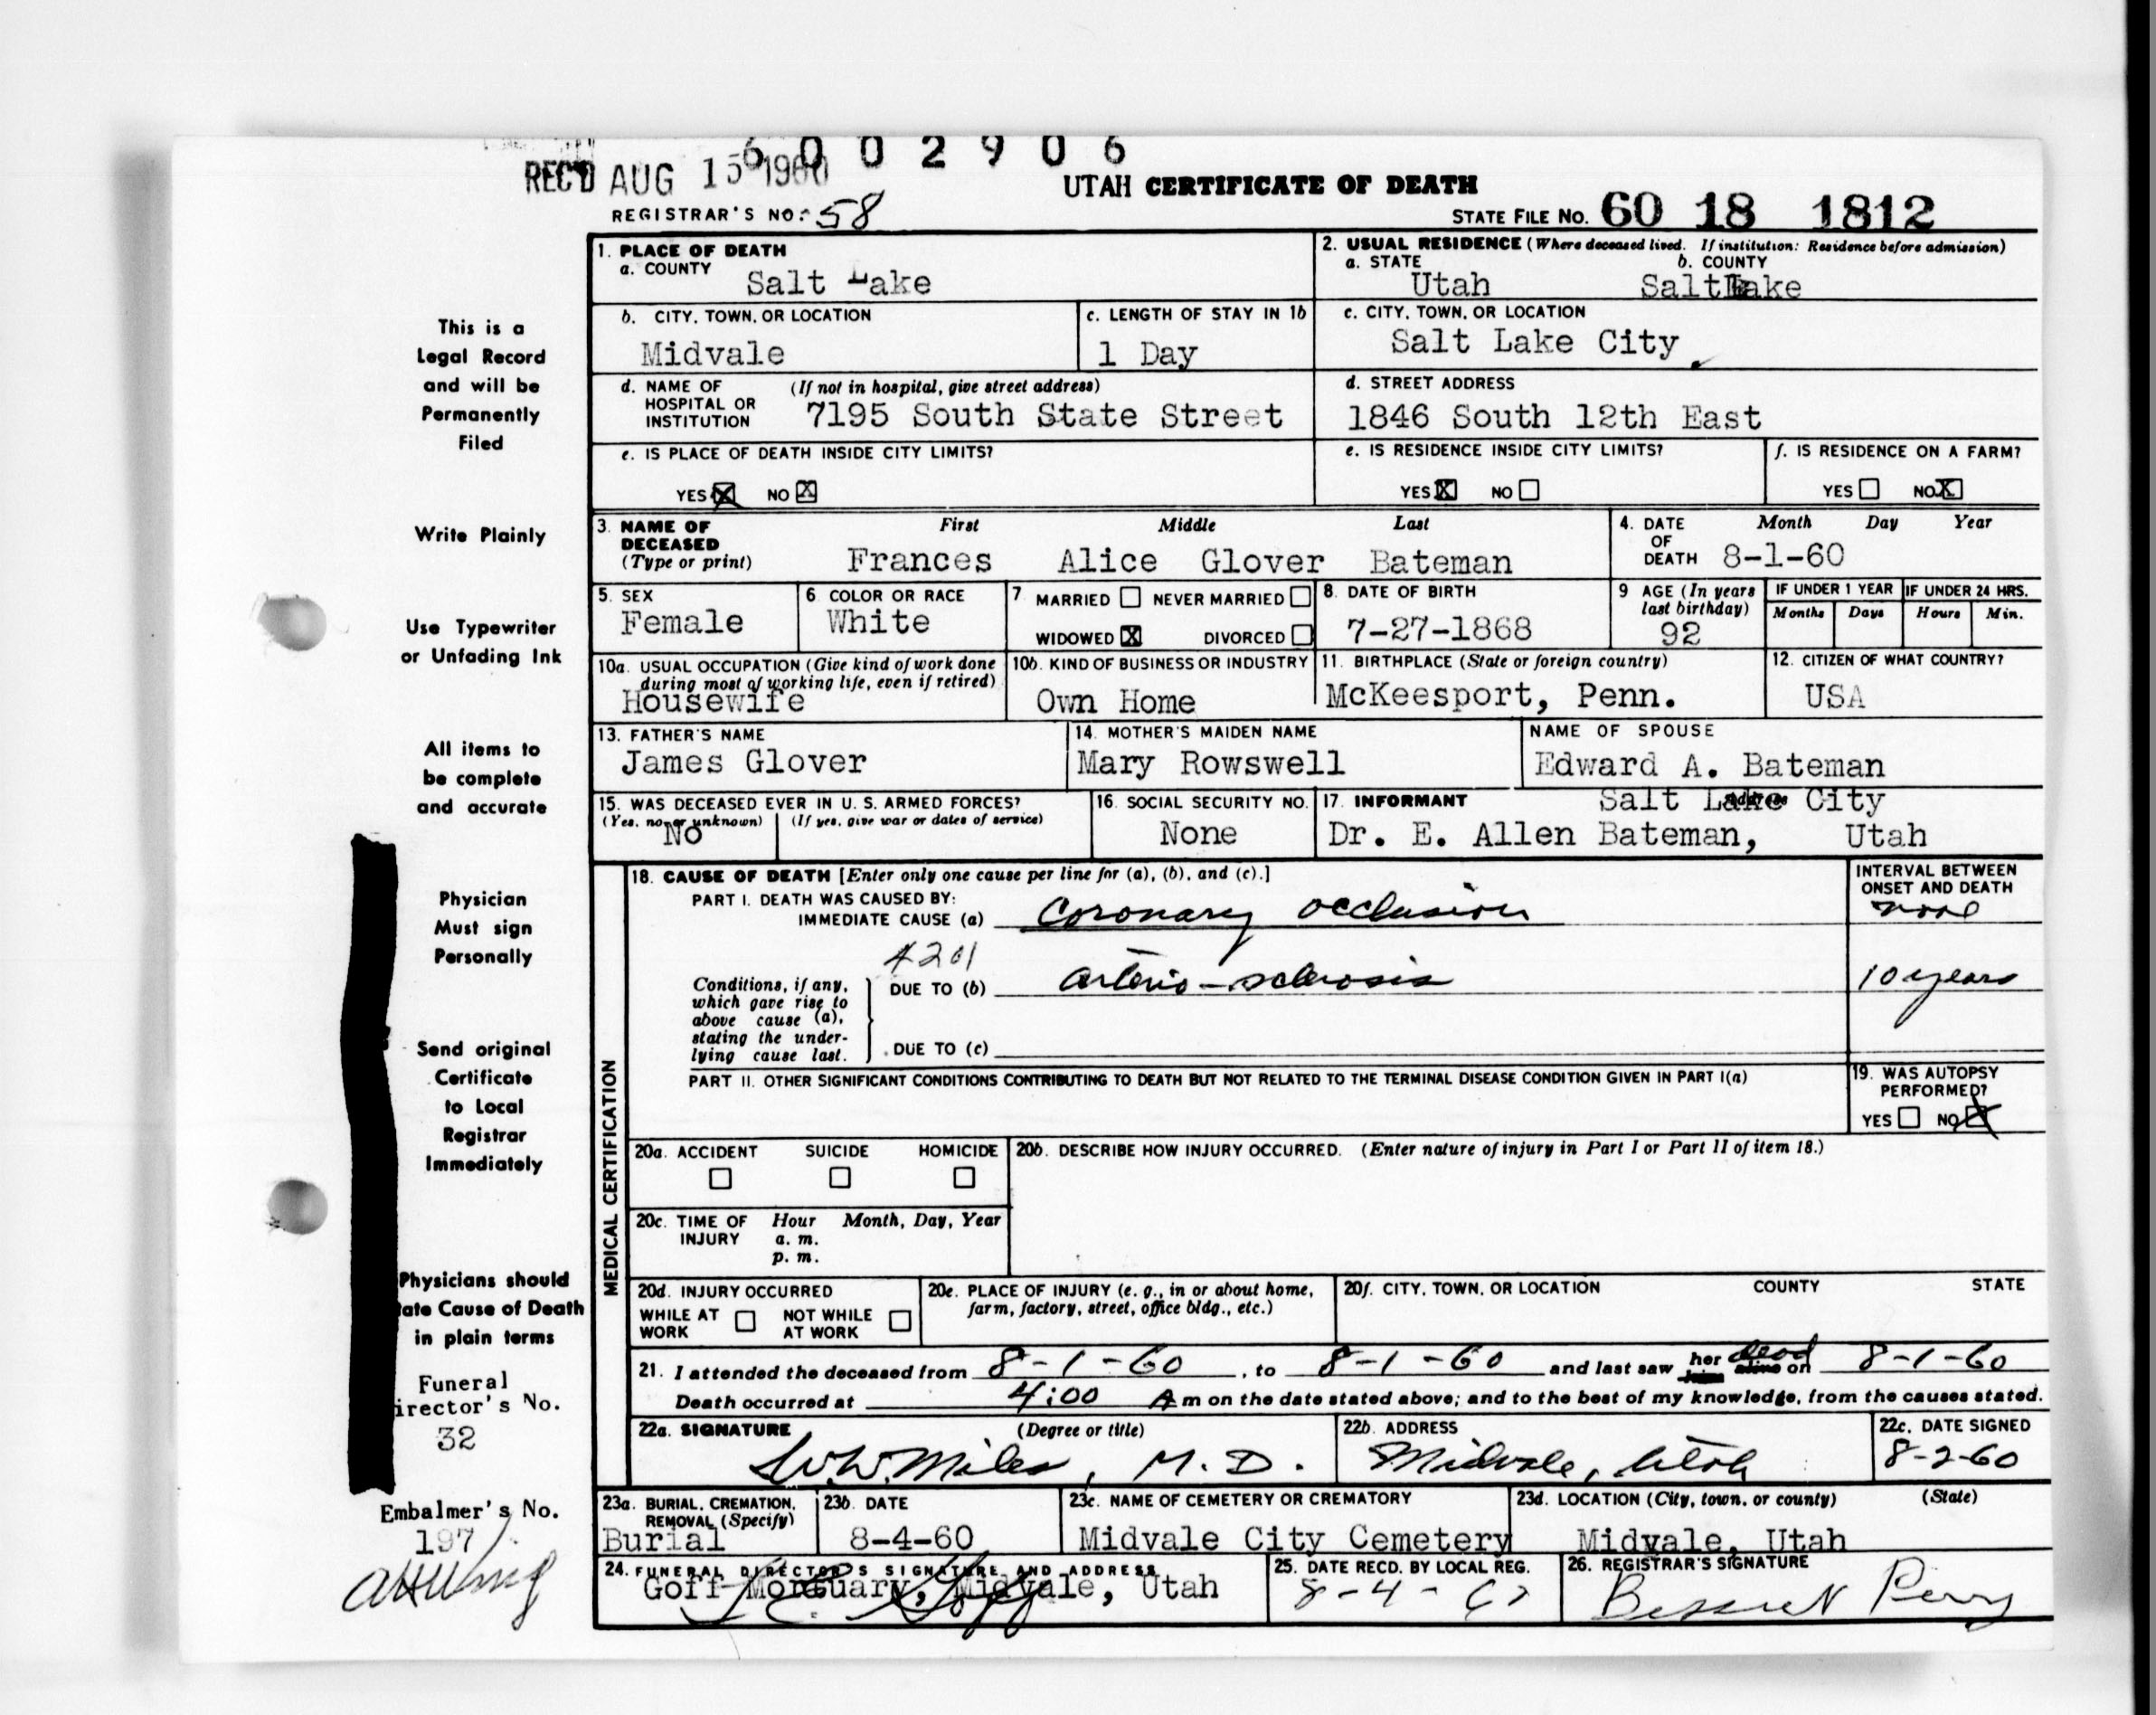 6002906
REC'D AUG 15 1960
UTAH CERTIFICATE OF DEATH
REGISTRAR'S NO. 58
STATE FILE NO. 60 18 1812
This is a
Legal Record
and will be
Permanently
Filed
Write Plainly
Use Typewriter
or Unfading Ink
All items to
be complete
and accurate
Physician
Must sign
Personally
Send original
Certificate
to Local
Registrar
Immediately
Physicians should
ate Cause of Death
in plain terms
Funeral
irector's No.
32
Embalmer's No.
197
1. PLACE OF DEATH
a. COUNTY Salt Lake
2. USUAL RESIDENCE (Where deceased lived. If institution: Residence before admission)
a. STATE Utah b. COUNTY Salt Lake
b. CITY, TOWN, OR LOCATION Midvale
c. LENGTH OF STAY IN 1b 1 Day
c. CITY, TOWN, OR LOCATION Salt Lake City
d. NAME OF HOSPITAL OR INSTITUTION (If not in hospital, give street address) 7195 South State Street
d. STREET ADDRESS 1846 South 12th East
e. IS PLACE OF DEATH INSIDE CITY LIMITS?
YES X NO X
e. IS RESIDENCE INSIDE CITY LIMITS?
YES X NO
f. IS RESIDENCE ON A FARM?
YES NO X
3. NAME OF DECEASED (Type or print) First Middle Last
Frances Alice Glover Bateman
4. DATE OF DEATH Month Day Year
8-1-60
5. SEX Female
6. COLOR OR RACE White
7. MARRIED NEVER MARRIED
WIDOWED X DIVORCED
8. DATE OF BIRTH 7-27-1868
9 AGE (In years last birthday) 92
IF UNDER 1 YEAR Months Days
IF UNDER 24 HRS. Hours Min.
10a. USUAL OCCUPATION (Give kind of work done during most of working life, even if retired) Housewife
10b. KIND OF BUSINESS OR INDUSTRY Own Home
11. BIRTHPLACE (State or foreign country) McKeesport, Penn.
12. CITIZEN OF WHAT COUNTRY? USA
13. FATHER'S NAME James Glover
14. MOTHER'S MAIDEN NAME Mary Rowswell
NAME OF SPOUSE Edward A. Bateman
15. WAS DECEASED EVER IN U. S. ARMED FORCES?
(Yes, no, or unknown) No (If yes, give war or dates of service)
16. SOCIAL SECURITY NO. None
17. INFORMANT Address Salt Lake City
Dr. E. Allen Bateman, Utah
MEDICAL CERTIFICATION
18. CAUSE OF DEATH [Enter only one cause per line for (a), (b), and (c).]
INTERVAL BETWEEN ONSET AND DEATH
PART I. DEATH WAS CAUSED BY:
IMMEDIATE CAUSE (a) Coronary occlusion none
4201
Conditions, if any, which gave rise to above cause (a), stating the underlying cause last.
DUE TO (b) arterio-sclerosis 10 years
DUE TO (c)
PART II. OTHER SIGNIFICANT CONDITIONS CONTRIBUTING TO DEATH BUT NOT RELATED TO THE TERMINAL DISEASE CONDITION GIVEN IN PART I(a)
19. WAS AUTOPSY PERFORMED?
YES NO X
20a. ACCIDENT SUICIDE HOMICIDE
20b. DESCRIBE HOW INJURY OCCURRED. (Enter nature of injury in Part I or Part II of item 18.)
20c. TIME OF INJURY Hour Month, Day, Year
a. m.
p. m.
20d. INJURY OCCURRED
WHILE AT WORK NOT WHILE AT WORK
20e. PLACE OF INJURY (e. g., in or about home, farm, factory, street, office bldg., etc.)
20f. CITY, TOWN, OR LOCATION COUNTY STATE
21. I attended the deceased from 8-1-60, to 8-1-60 and last saw her dead alive on 8-1-60
Death occurred at 4:00 A m on the date stated above; and to the best of my knowledge, from the causes stated.
22a. SIGNATURE (Degree or title)
W.W. Miles, M.D.
22b. ADDRESS Midvale, Utah
22c. DATE SIGNED 8-2-60
23a. BURIAL, CREMATION, REMOVAL (Specify) Burial
23b. DATE 8-4-60
23c. NAME OF CEMETERY OR CREMATORY Midvale City Cemetery
23d. LOCATION (City, town, or county) (State) Midvale, Utah
24. FUNERAL DIRECTOR'S SIGNATURE AND ADDRESS
Goff Mortuary, Midvale, Utah
25. DATE RECD. BY LOCAL REG.
26. REGISTRAR'S SIGNATURE
Perry